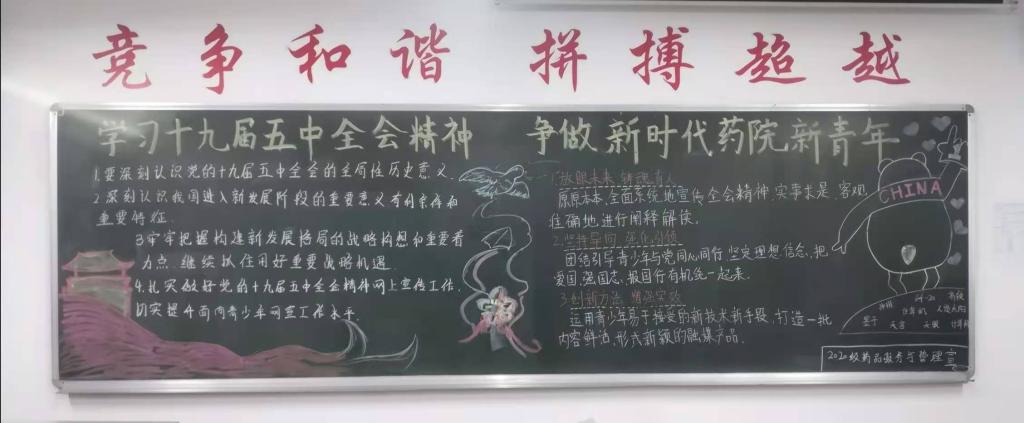 竞争和谐 拼搏超越
学习十九届五中全会精神
1.要深刻认识党的十九届五中全会的全局性历史意义.
2.深刻认识我国进入新发展阶段的重要意义有利条件和
重要特征.
3.牢牢把握构建新发展格局的战略构想和重要着
力点.继续抓住用好重要战略机遇.
4.扎实做好党的十九届五中全会精神网上宣传工作.
切实提升面向青少年网宣工作水平.
争做新时代药院新青年
1.放眼未来
原原本本,全面系统地宣传全会精神,实事求是,客观
准确地进行阐释解读.
2.坚持导向 强化引领
团结引导青少年与党同心同行,坚定理想信念,把
爱国,强国志,报国行有机统一起来.
3.创新方法 增强实效
运用青少年易于接受的新技术新手段,打造一批
内容鲜活,形式新颖的融媒产品.
CHINA
量子
天宫
天眼
2020级药品服务与管理宣